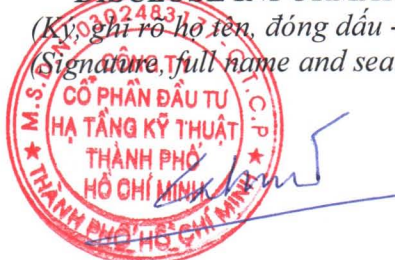 (Ký, ghi rõ họ tên, đóng dấu -
(Signature, full name and sea
M.S.D.N: 0302483177-C.T.C.P
CÔNG TY
CỔ PHẦN ĐẦU TƯ
HẠ TẦNG KỸ THUẬT
THÀNH PHỐ
HỒ CHÍ MINH
THÀNH PHỐ HỒ CHÍ MINH